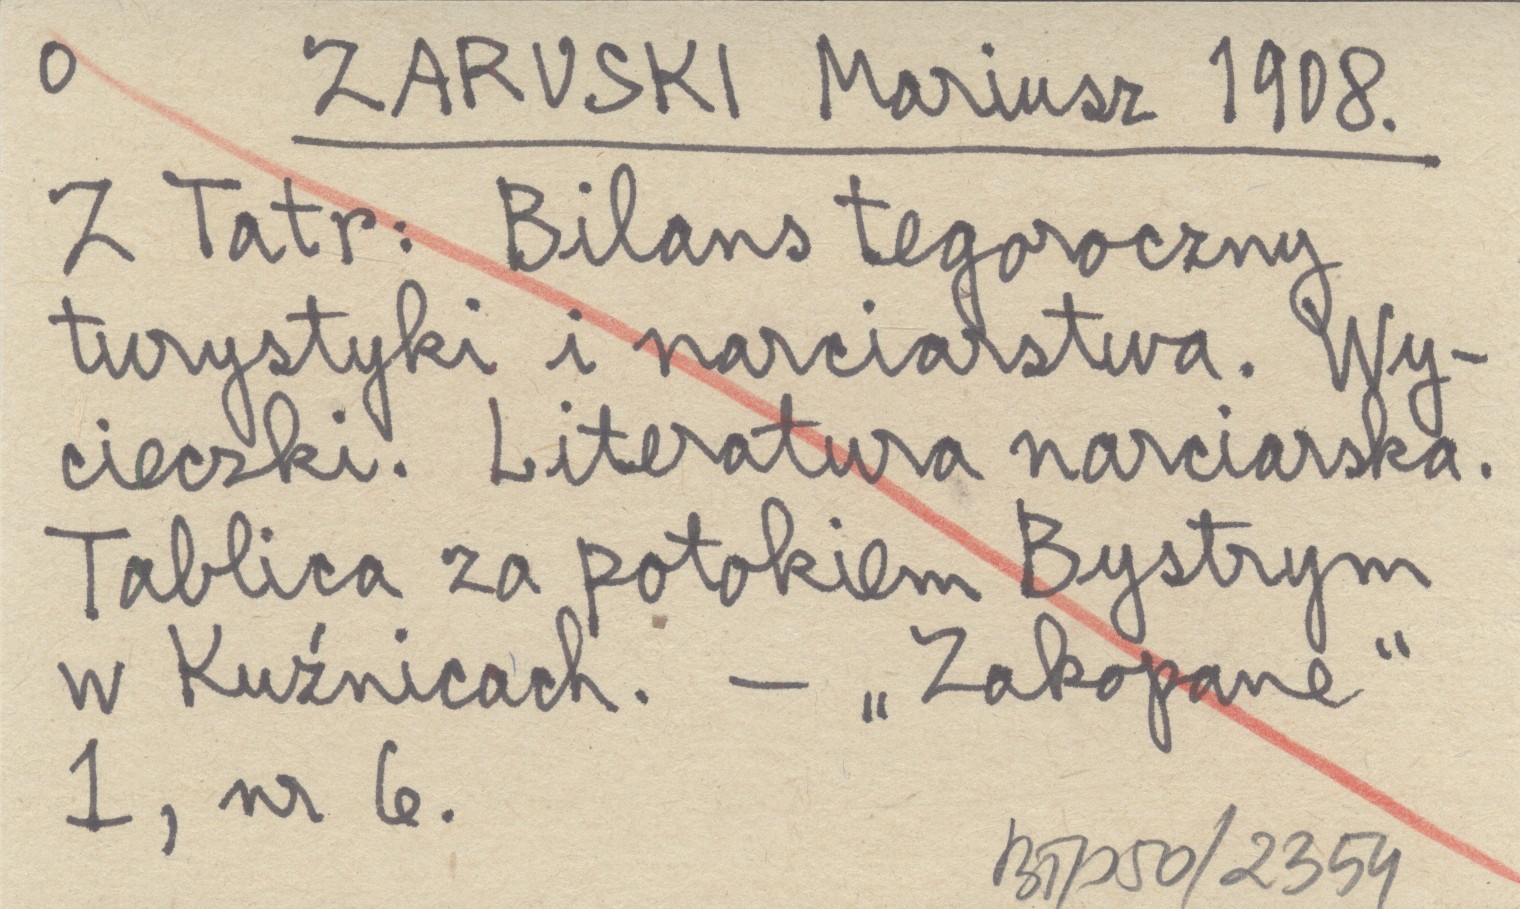 o ZARUSKI Mariusz 1908.
Z Tatr: Bilans tegoroczny
turystyki i narciarstwa. Wy-
cieczki. Literatura narciarska.
Tablica za potokiem Bystrym
w Kuźnicach. — „Zakopane“
1, nr 6.
BTP50/2354